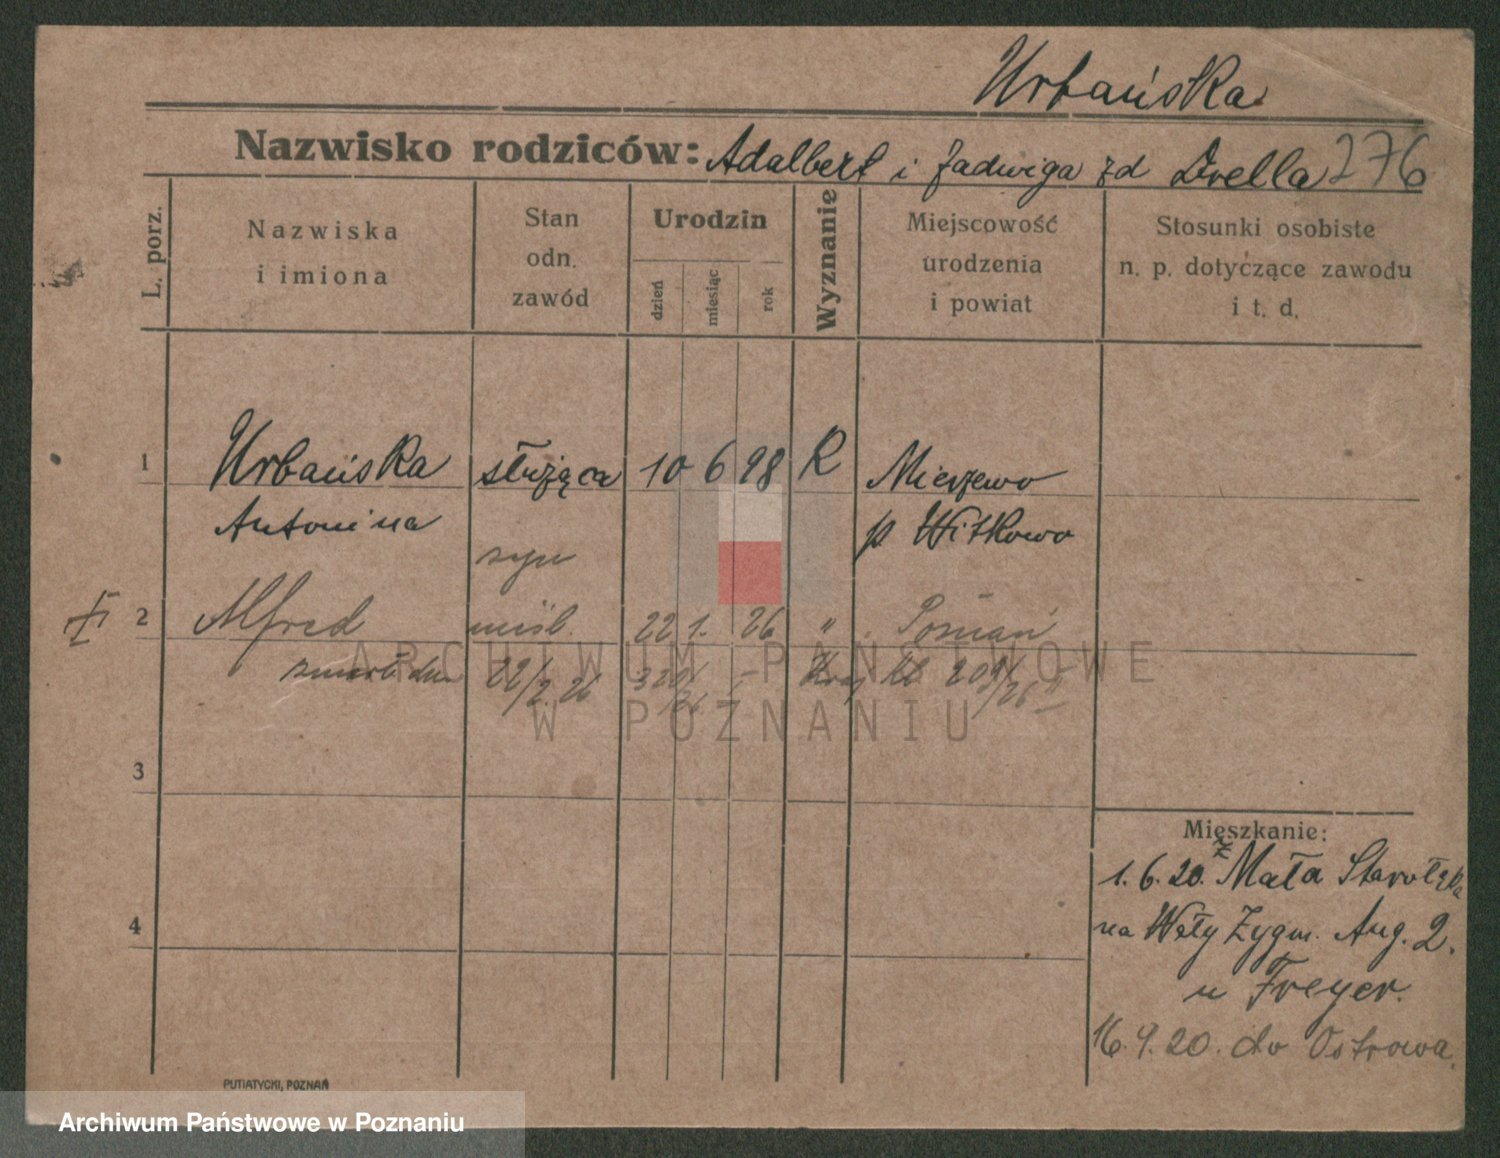 Urbańska
Nazwisko rodziców: Adalbert i Jadwiga zd Drella 276
L. porz.
Nazwiska
i imiona
Stan
odn.
zawód
Urodzin
dzień
miesiąc
rok
Wyznanie
Miejscowość
urodzenia
i powiat
Stosunki osobiste
n. p. dotyczące zawodu
i t. d.
1 Urbańska służąca 10 6 98 R Mierzewo
Antonina p Witkowo
syn
2 Alfred nieśl. 22 1. 26 " Poznań
22/2.26
ARCHIWUM PAŃSTWOWE
W POZNANIU
3
Mieszkanie:
1.6.20. z Mała Starołęka
4
na Wały Zygm. Aug. 2.
u Freyer.
16.9.20. do Ostrowa.
PUTIATYCKI, POZNAŃ
Archiwum Państwowe w Poznaniu